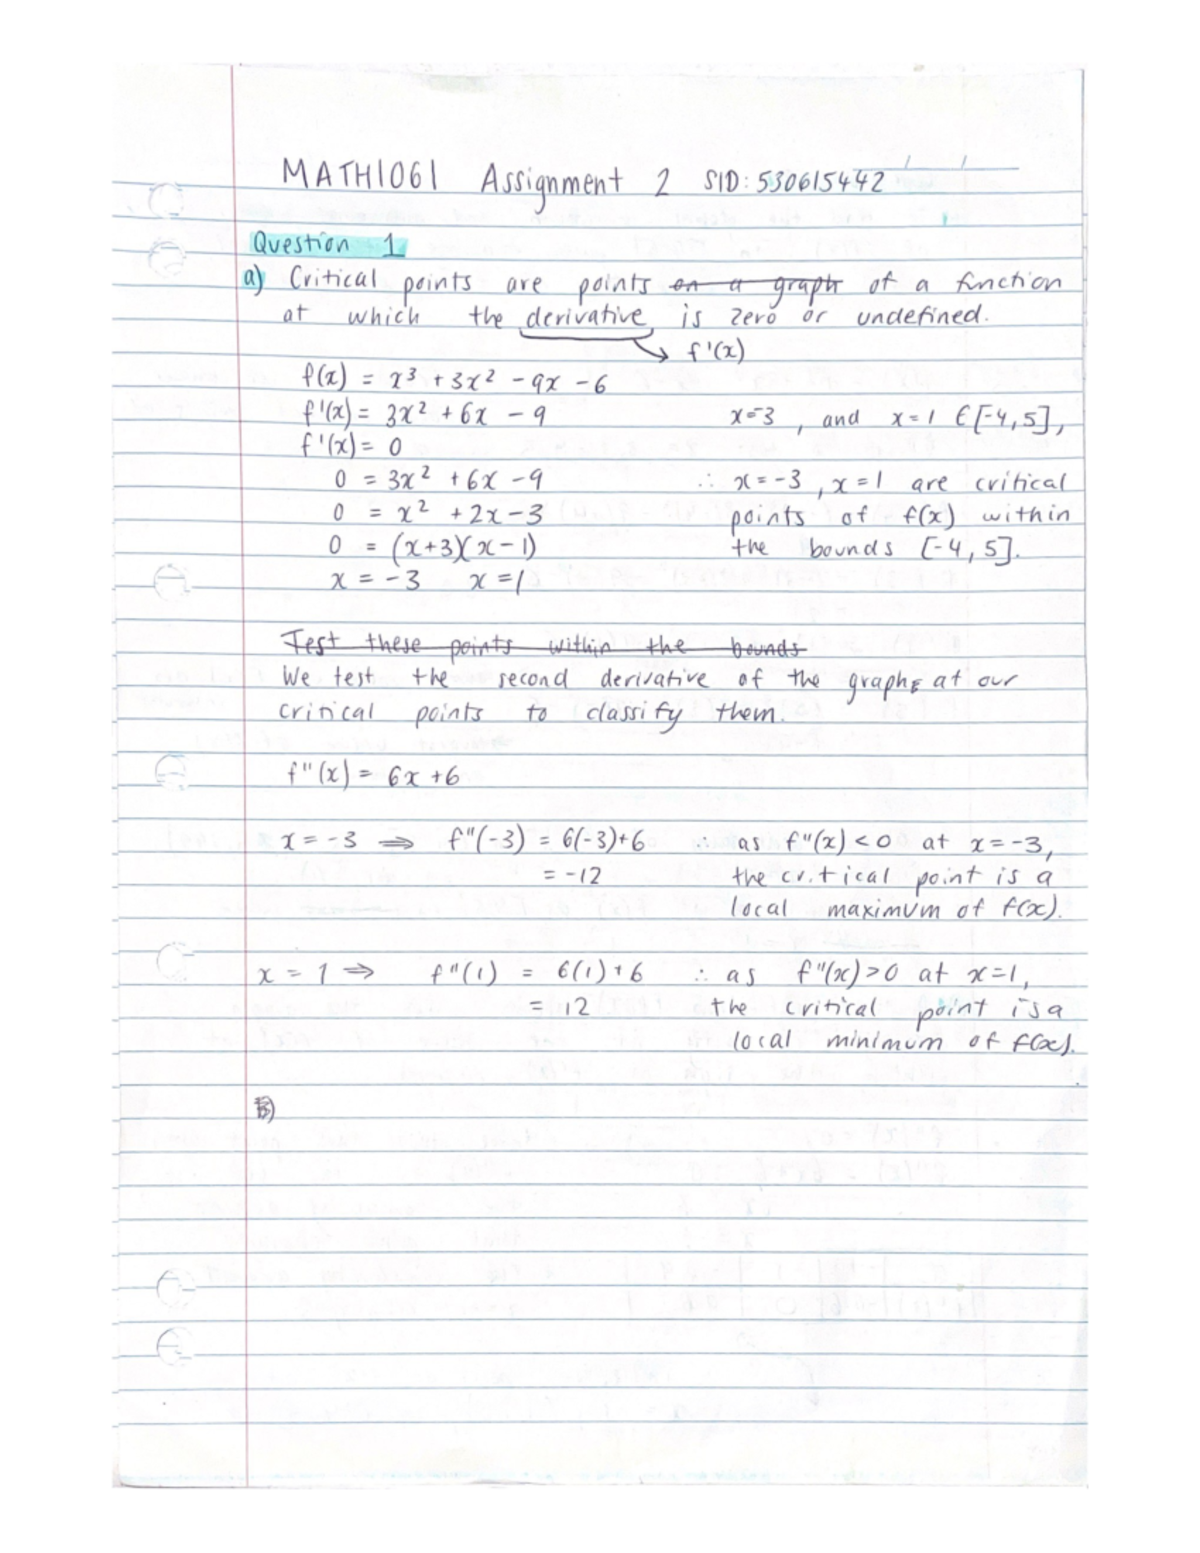 MATH1061 Assignment 2 SID: 530615442
Question 1
a) Critical points are points on a graph of a function
at which the derivative is zero or undefined.
f'(x)
f(x) = x³ + 3x² - 9x - 6
f'(x) = 3x² + 6x - 9
f'(x) = 0
0 = 3x² + 6x - 9
0 = x² + 2x - 3
0 = (x+3)(x-1)
x = -3 x = 1
x=-3 , and x=1 ∈ [-4,5],
∴ x = -3 , x = 1 are critical
points of f(x) within
the bounds [-4, 5].
Test these points within the bounds
We test the second derivative of the graph at our
critical points to classify them.
f"(x) = 6x + 6
x = -3 ⇒ f"(-3) = 6(-3)+6
= -12
∴ as f"(x) < 0 at x = -3,
the critical point is a
local maximum of f(x).
x = 1 ⇒ f"(1) = 6(1)+6
= 12
∴ as f"(x) > 0 at x=1,
the critical point is a
local minimum of f(x).
B)